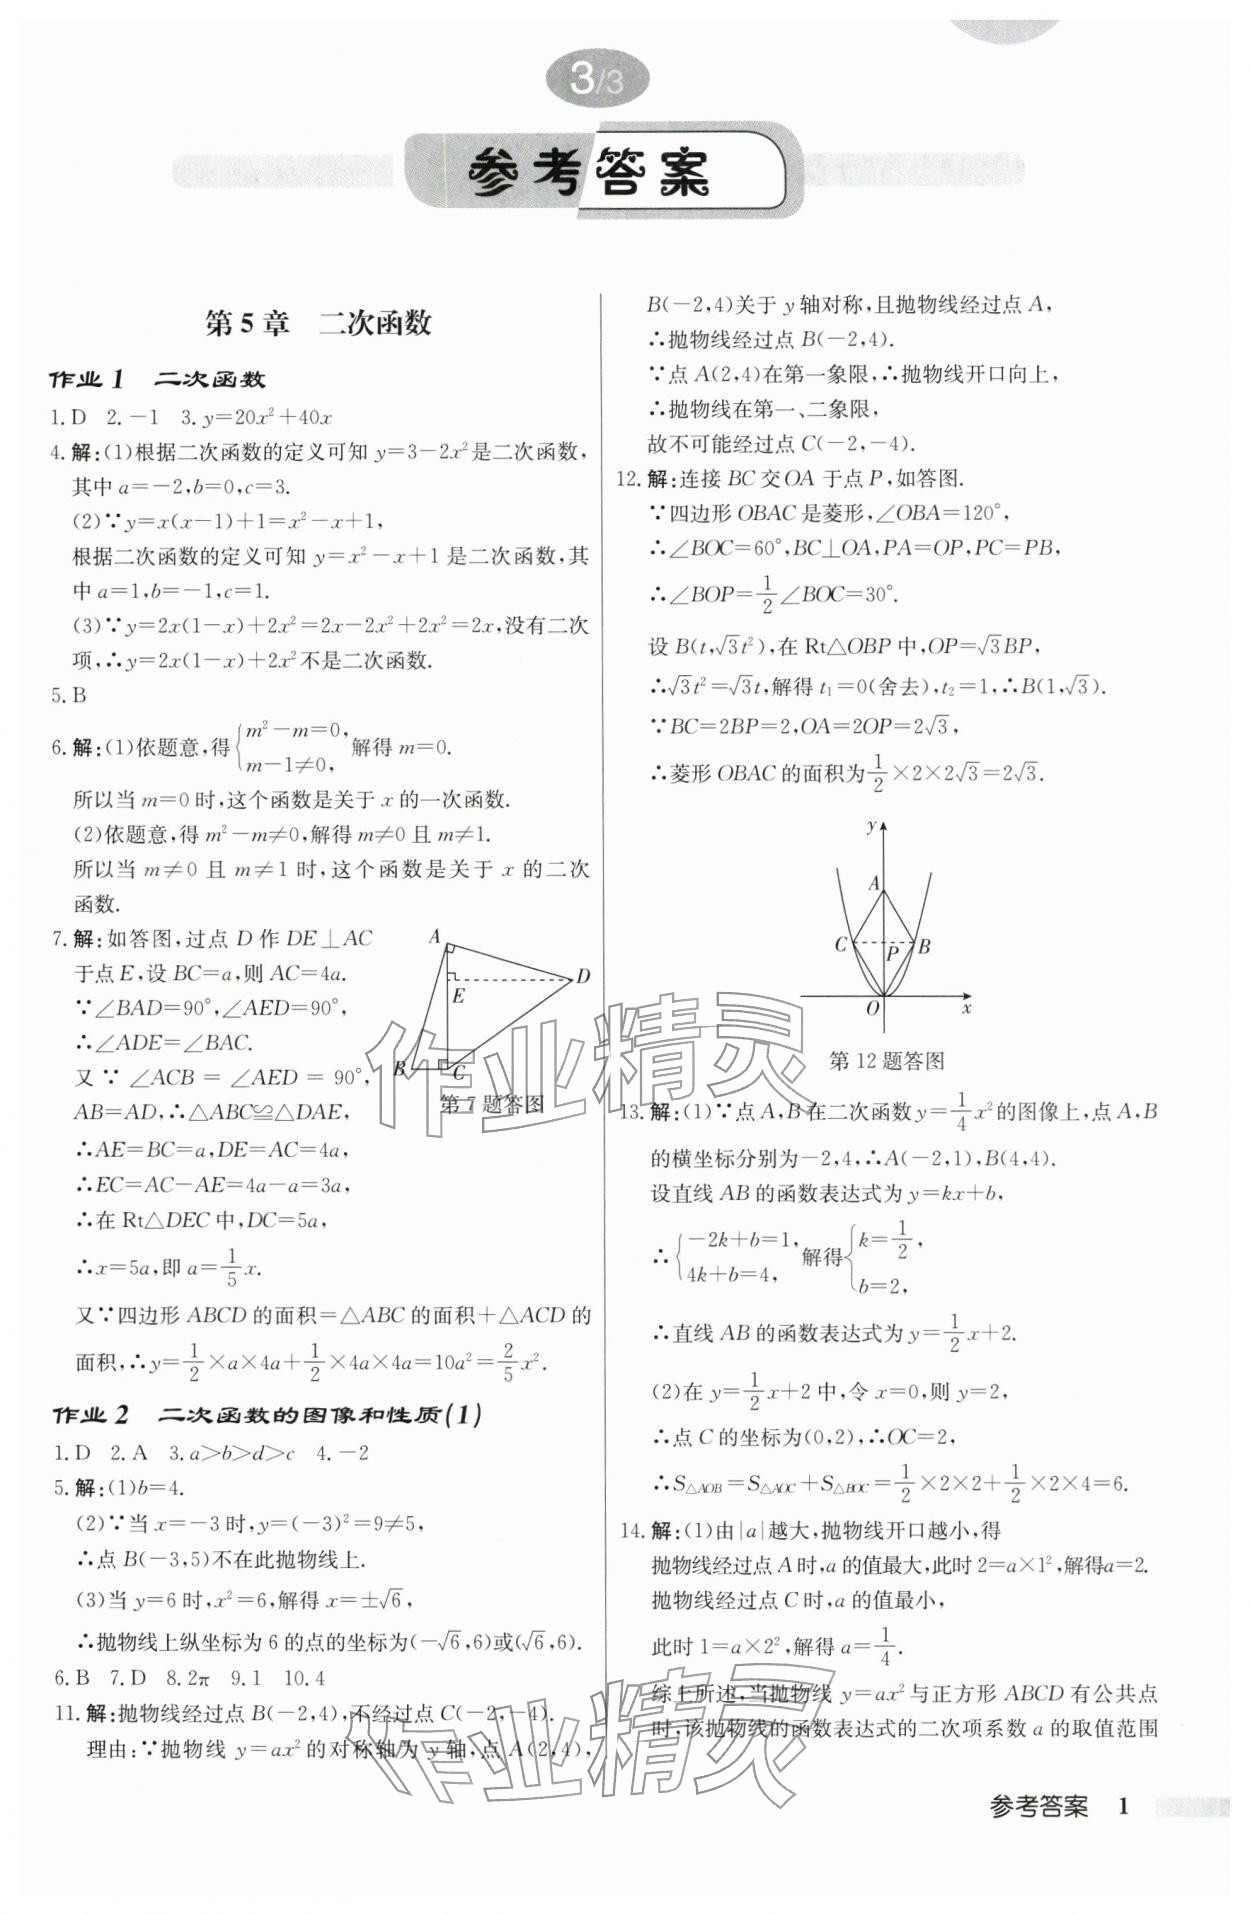 3/3
参考答案
第5章 二次函数
作业1 二次函数
1.D 2.-1 3.y=20x²+40x
4.解:(1)根据二次函数的定义可知 y=3-2x²是二次函数,
其中a=-2,b=0,c=3.
(2)∵y=x(x-1)+1=x²-x+1,
根据二次函数的定义可知 y=x²-x+1是二次函数,其
中a=1,b=-1,c=1.
(3)∵y=2x(1-x)+2x²=2x-2x²+2x²=2x,没有二次
项,∴y=2x(1-x)+2x²不是二次函数.
5.B
6.解:(1)依题意,得{m²-m=0, m-1≠0, 解得m=0.
所以当m=0时,这个函数是关于x的一次函数.
(2)依题意,得m²-m≠0,解得m≠0且m≠1.
所以当m≠0且m≠1时,这个函数是关于x的二次
函数.
7.解:如答图,过点D作DE⊥AC
于点E,设BC=a,则AC=4a.
∵∠BAD=90°,∠AED=90°,
∴∠ADE=∠BAC.
又∵∠ACB=∠AED=90°,
AB=AD,∴△ABC≌△DAE,
∴AE=BC=a,DE=AC=4a,
∴EC=AC-AE=4a-a=3a,
∴在Rt△DEC中,DC=5a,
∴x=5a,即a=1/5x.
又∵四边形ABCD的面积=△ABC的面积+△ACD的
面积,∴y=1/2×a×4a+1/2×4a×4a=10a²=2/5x².
A
D
E
B
C
第7题答图
作业2 二次函数的图像和性质(1)
1.D 2.A 3.a>b>d>c 4.-2
5.解:(1)b=4.
(2)∵当x=-3时,y=(-3)²=9≠5,
∴点B(-3,5)不在此抛物线上.
(3)当y=6时,x²=6,解得x=±√6,
∴抛物线上纵坐标为6的点的坐标为(-√6,6)或(√6,6).
6.B 7.D 8.2π 9.1 10.4
11.解:抛物线经过点B(-2,4),不经过点C(-2,-4).
理由:∵抛物线y=ax²的对称轴为y轴,点A(2,4),
B(-2,4)关于y轴对称,且抛物线经过点A,
∴抛物线经过点B(-2,4).
∵点A(2,4)在第一象限,∴抛物线开口向上,
∴抛物线在第一、二象限,
故不可能经过点C(-2,-4).
12.解:连接BC交OA于点P,如答图.
∵四边形OBAC是菱形,∠OBA=120°,
∴∠BOC=60°,BC⊥OA,PA=OP,PC=PB,
∴∠BOP=1/2∠BOC=30°.
设B(t,√3t²),在Rt△OBP中,OP=√3BP,
∴√3t²=√3t,解得t₁=0(舍去),t₂=1,∴B(1,√3).
∵BC=2BP=2,OA=2OP=2√3,
∴菱形OBAC的面积为1/2×2×2√3=2√3.
y
A
C
P
B
O
x
第12题答图
13.解:(1)∵点A,B在二次函数y=1/4x²的图像上,点A,B
的横坐标分别为-2,4,∴A(-2,1),B(4,4).
设直线AB的函数表达式为y=kx+b,
∴{-2k+b=1, 4k+b=4, 解得{k=1/2, b=2,
∴直线AB的函数表达式为y=1/2x+2.
(2)在y=1/2x+2中,令x=0,则y=2,
∴点C的坐标为(0,2),∴OC=2,
∴S△AOB=S△AOC+S△BOC=1/2×2×2+1/2×2×4=6.
14.解:(1)由|a|越大,抛物线开口越小,得
抛物线经过点A时,a的值最大,此时2=a×1²,解得a=2.
抛物线经过点C时,a的值最小,
此时1=a×2²,解得a=1/4.
综上所述,当抛物线y=ax²与正方形ABCD有公共点
时,该抛物线的函数表达式的二次项系数a的取值范围
作业精灵
作业精灵
参考答案 1